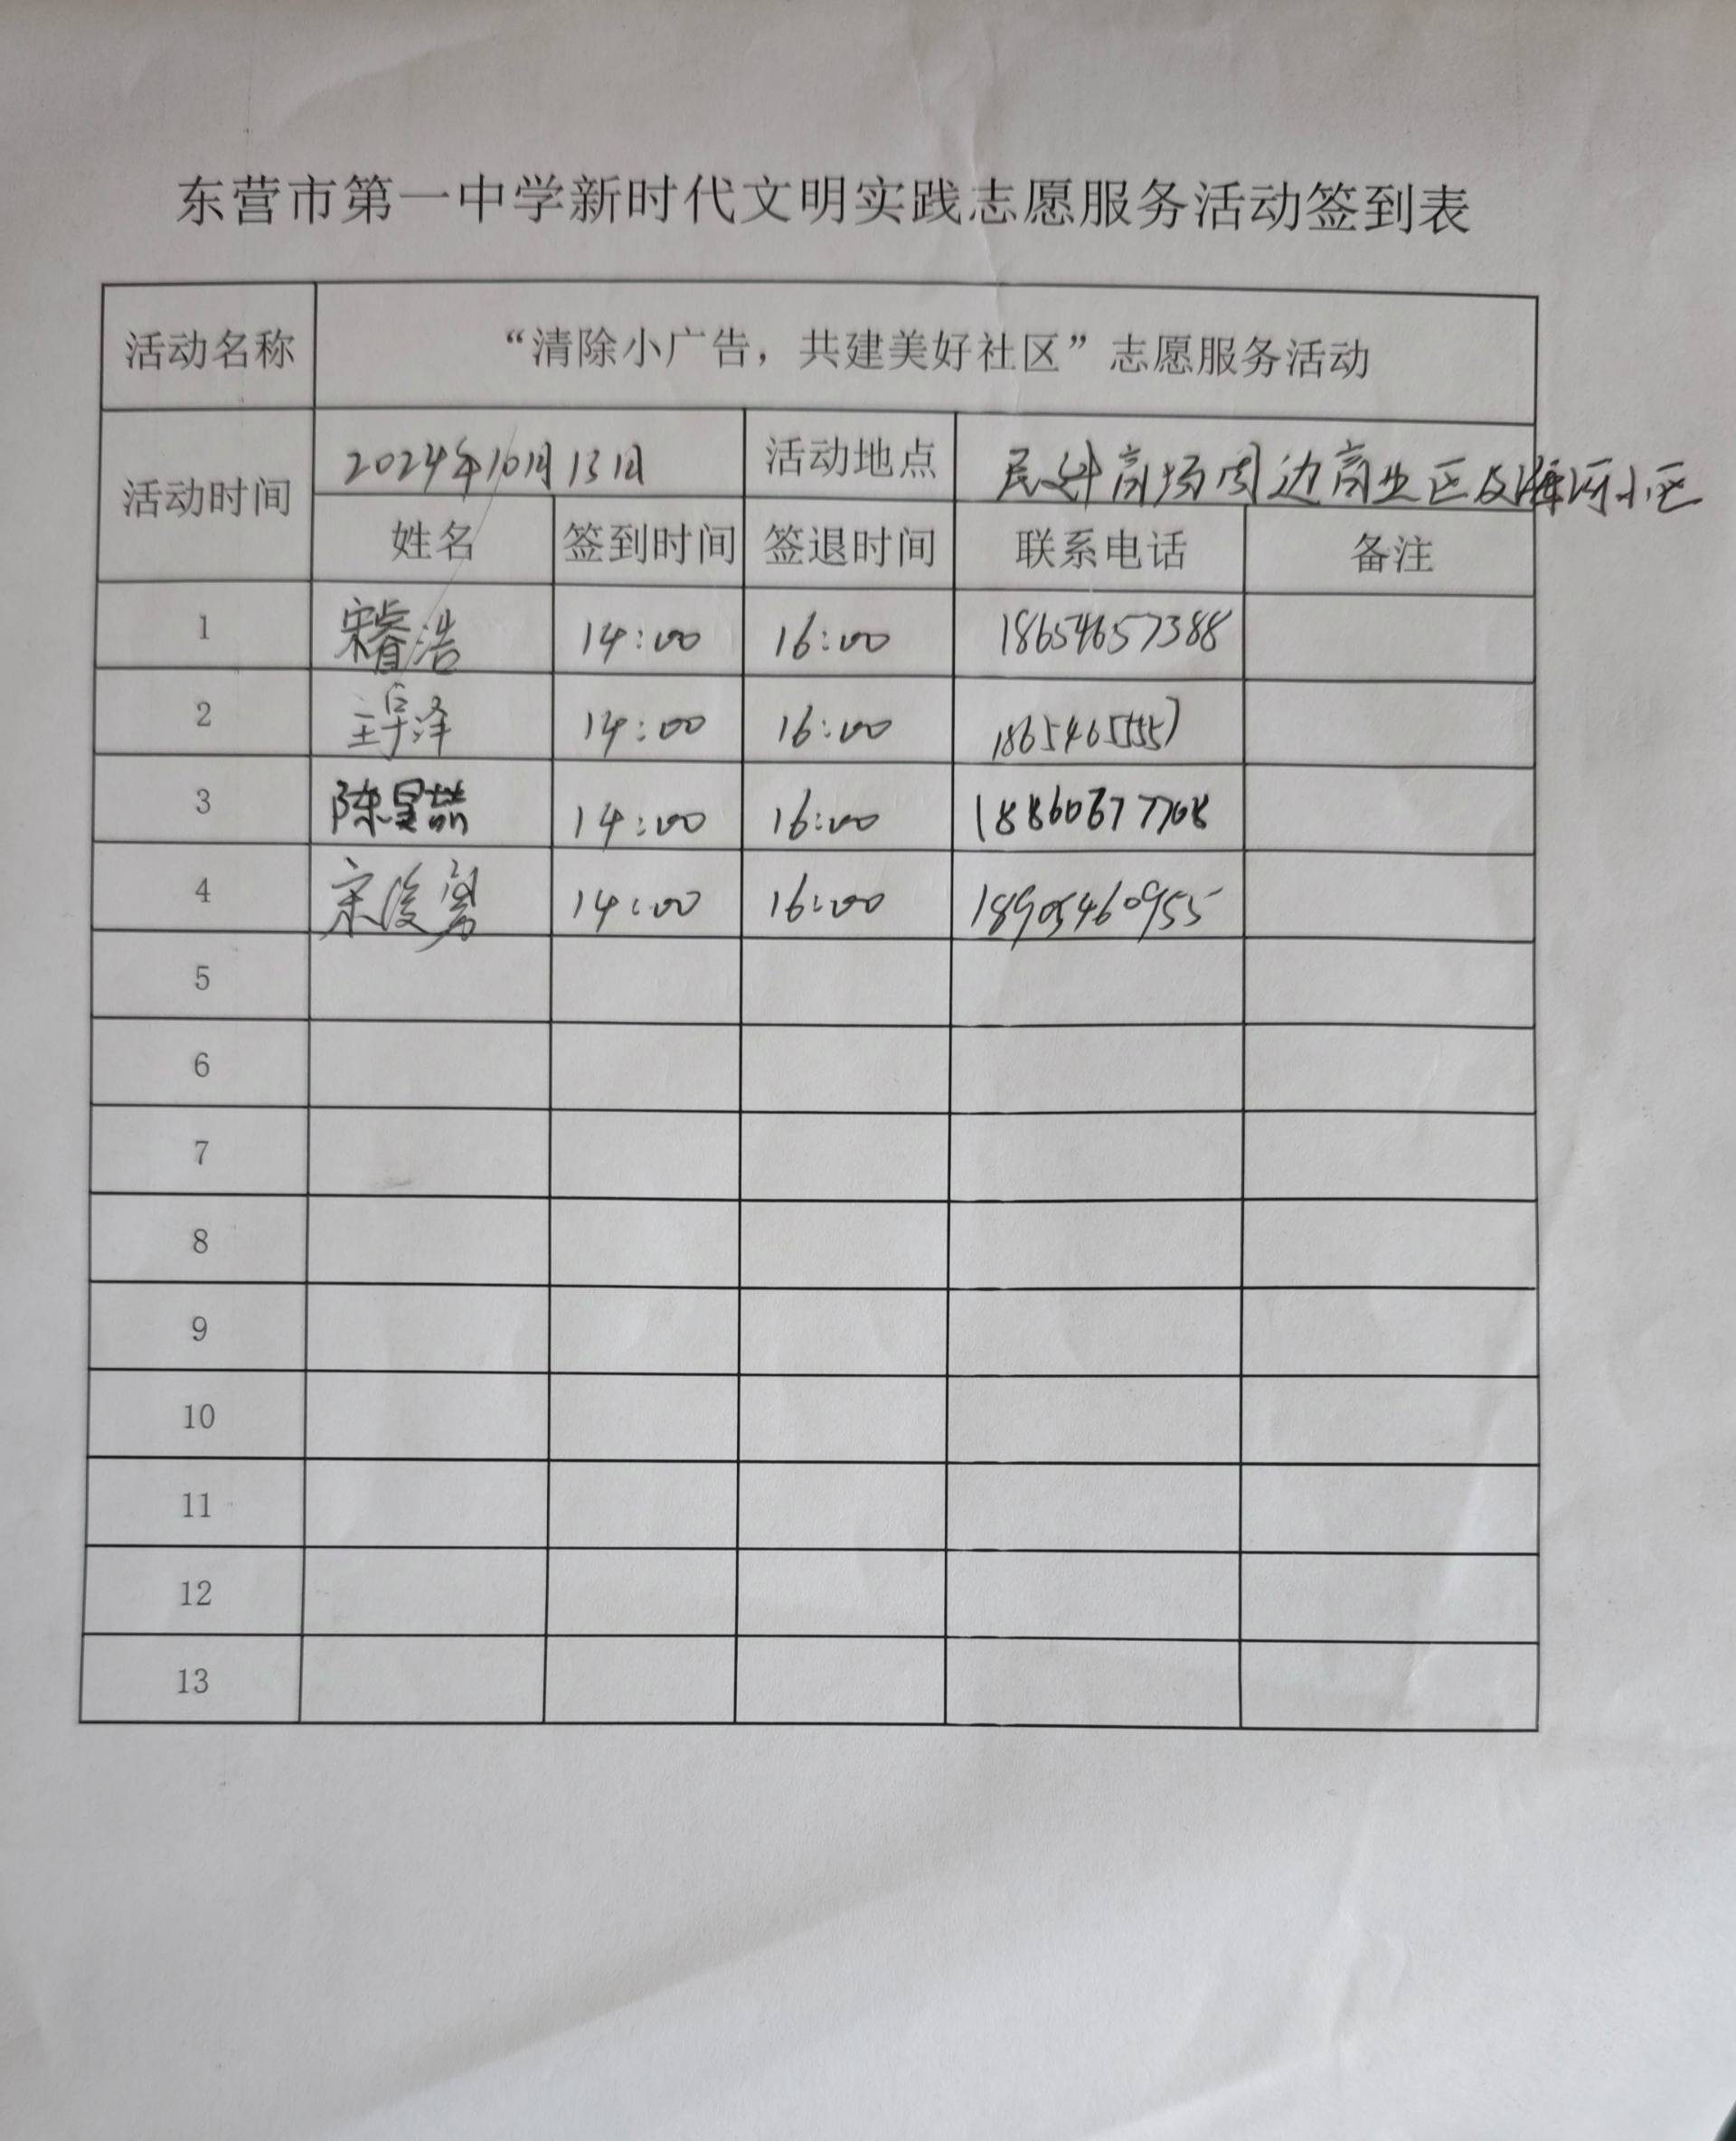 东营市第一中学新时代文明实践志愿服务活动签到表
活动名称 “清除小广告，共建美好社区”志愿服务活动
活动时间 2024年10月13日 活动地点 民进商场周边商业区及海河小区
姓名 签到时间 签退时间 联系电话 备注
1 宋睿浩 14:00 16:00 18654657388
2 泽 14:00 16:00
3 陈昊喆 14:00 16:00
4 宋俊 14:00 16:00 18905460955
5
6
7
8
9
10
11
12
13